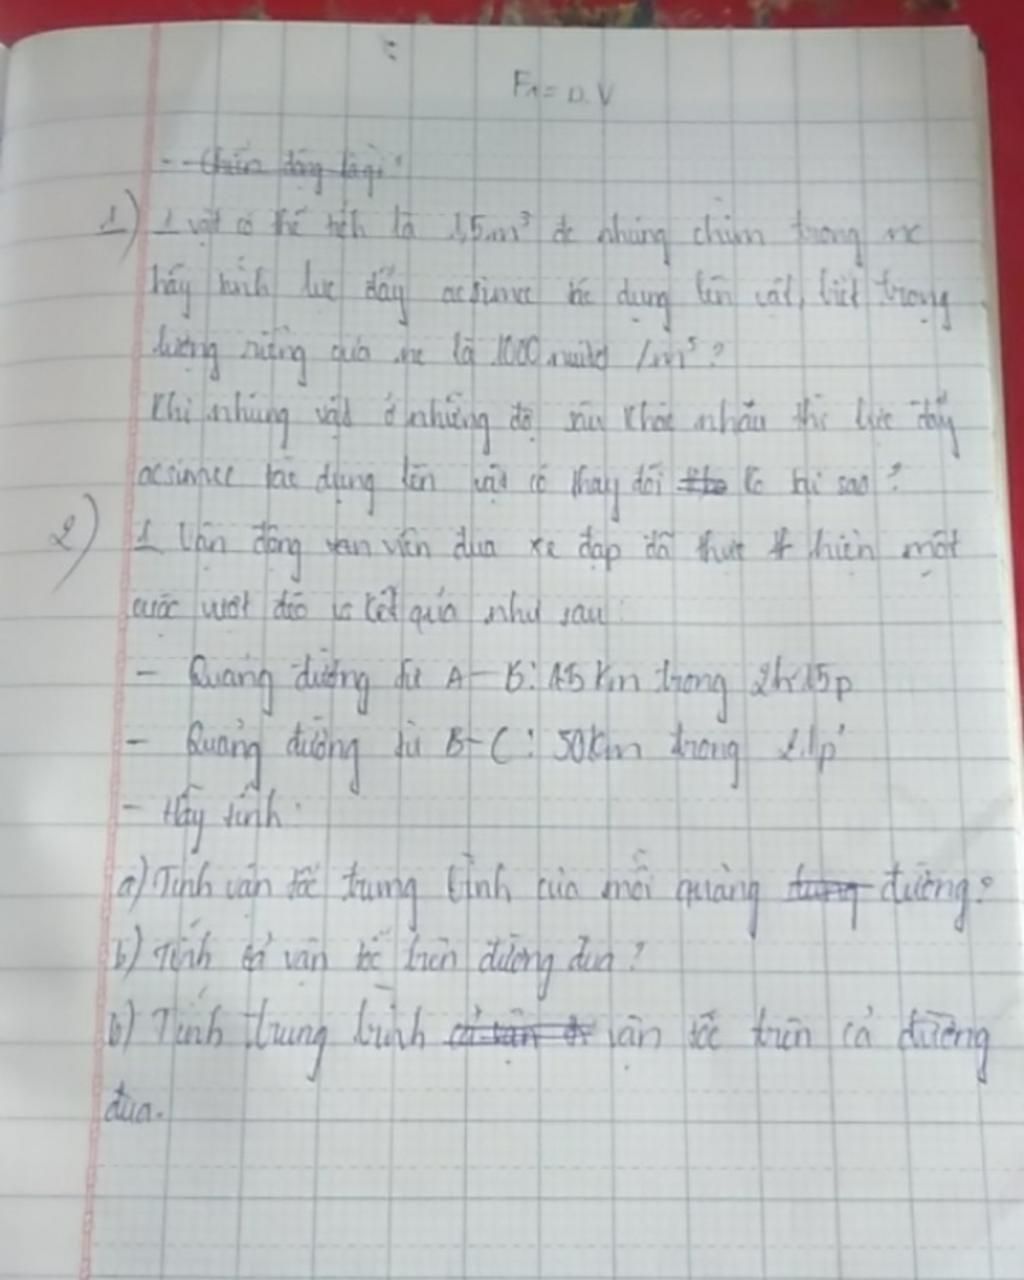 F₁ = D.V
1) 1 vật có thể tích là 1,5m³ đc nhúng chìm trong nc
hãy tính lực đẩy acsimec tác dụng lên vật, biết trọng
lượng riêng của nc là 1000 /m³?
Khi nhúng vật ở những độ sâu khác nhau thì lực đẩy
acsimec tác dụng lên vật có thay đổi ko tại sao?
2) 1 Vận động van viên đua xe đạp đã thực hiện một
cuộc vượt đèo kết quả như sau:
- Quảng đường từ A-B: 45 Km trong 2h15p
- Quảng đường từ B-C: 50Km trong
- Hãy tính:
a) Tính vận tốc trung bình của mỗi quảng đường?
b) Tính cả vận tốc trên đường đua?
b) Tính trung bình vận tốc trên cả đường
đua.